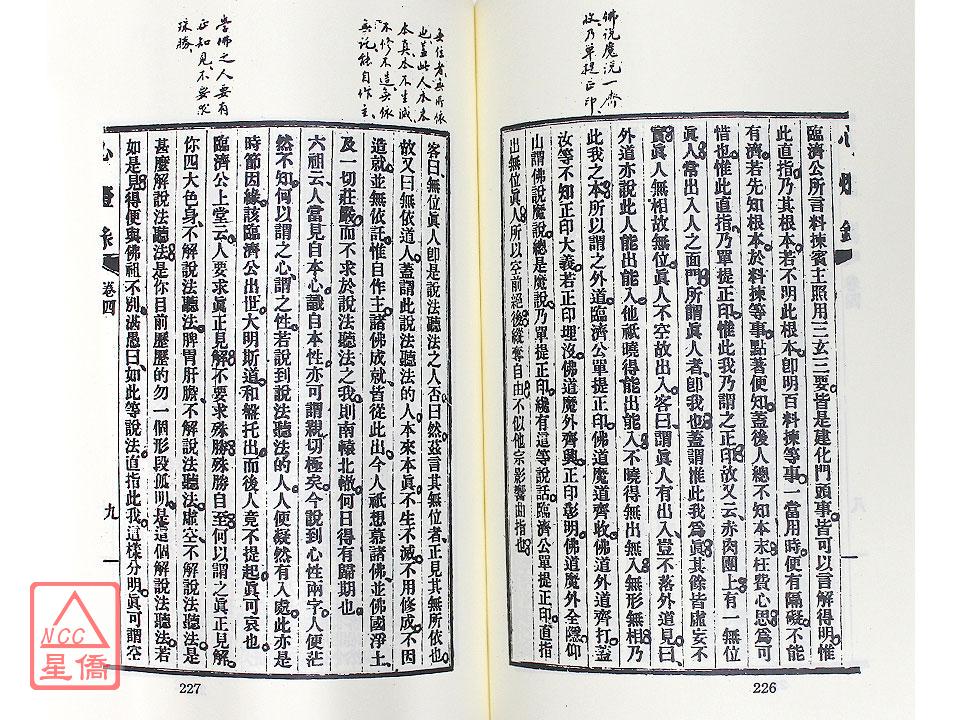 佛说魔说一齊
收乃單提正印
心燈錄
臨濟公所言料揀賓主照用三玄三要皆是建化門頭事皆可以言解得明惟
此直指乃其根本若不明此根本卽明百料揀等事一當用時便有隔礙不能
有濟若先知根本於料揀等事點著便知蓋後人總不知本末枉費心思爲可
惜也惟此直指乃單提正印惟此我乃謂之正印故又云赤肉團上有一無位
眞人常出入人之面門所謂眞人者卽我也蓋謂惟此我爲眞其餘皆虛妄不
實眞人無相故無位眞人不空故出入客曰謂眞人有出入豈不落外道見曰
外道亦說此人能出能入他祇曉得能出能入不曉得無出無入無形無相乃
此我之本所以謂之外道臨濟公單提正印佛道魔道齊收佛道外道齊打蓋
汝等不知正印大義若正印埋沒佛道魔外齊興正印彰明佛道魔外全隱仰
山謂佛說魔說總是魔說乃單提正印纔有這等說話臨濟公單提正印直指
出無位眞人所以空前絕後縱奪自由不似他宗影響曲指也
226
無住者無所依
也蓋此人本來
本真本不生滅
不修不造無依
無託能自作主
學佛之人要有
正知見不要求
殊勝
客曰無位眞人卽是說法聽法之人否曰然茲言其無位者正見其無所依也
故又曰無依道人蓋謂此說法聽法的人本來本眞不生不滅不用修成不因
造就並無依託惟自作主諸佛成就皆從此出今人祇想慕諸佛並佛國淨土
及一切莊嚴而不求於說法聽法之我則南轅北轍何日得有歸期也
六祖云人當見自本心識自本性亦可謂親切極矣今說到心性兩字人便茫
然不知何以謂之心謂之性若說到說法聽法的人人便凝然有入處此亦是
時節因緣該臨濟公出世大明斯道和盤托出而後人竟不提起眞可哀也
臨濟公上堂云人要求眞正見解不要求殊勝殊勝自至何以謂之眞正見解
你四大色身不解說法聽法脾胃肝膽不解說法聽法虛空不解說法聽法是
甚麼解說法聽法是你目前歷歷的勿一個形段孤明是這個解說法聽法若
如是見得便與佛祖不別湛愚曰如此等說法直指此我這樣分明眞可謂空
心燈錄 卷四
九
227
NCC
星僑